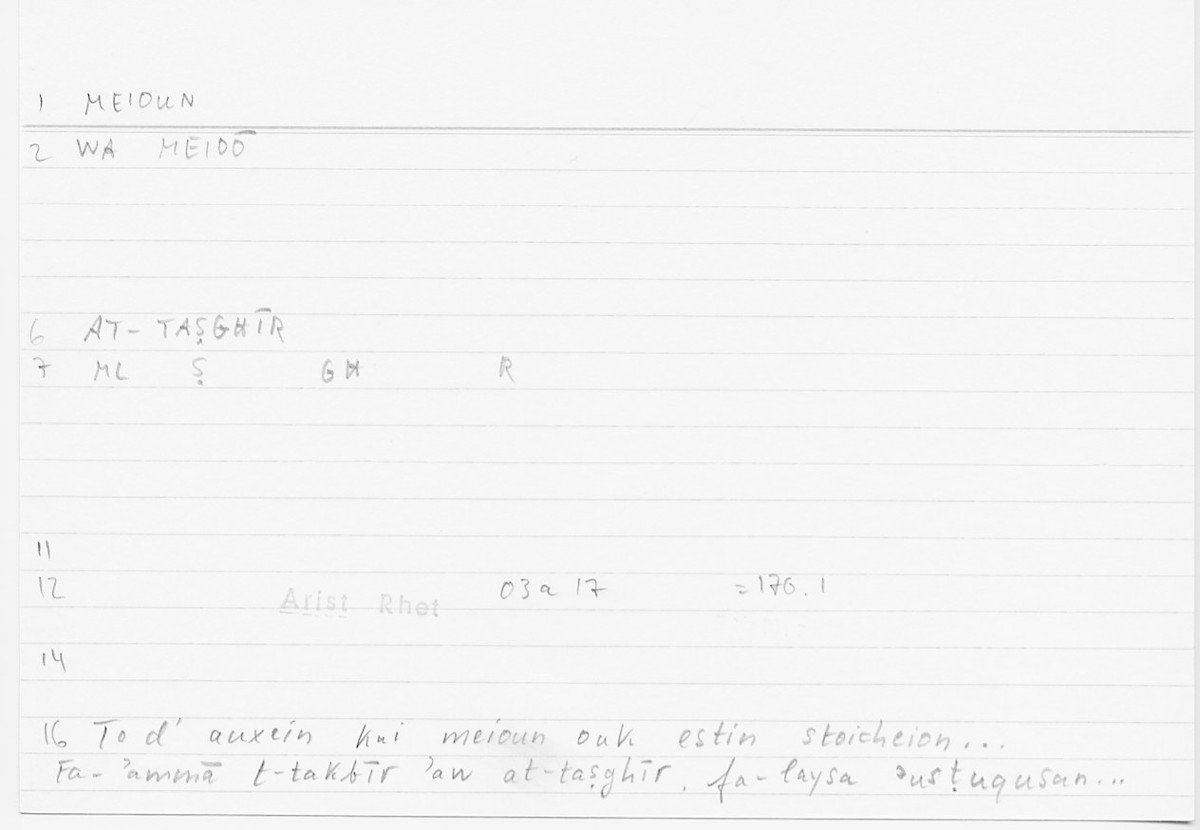 1 MEIOUN
2 WA MEIOŌ
6 AT-TAṢGHĪR
7 ML Ṣ GH R
11
12 Arist Rhet 03a 17 =176.1
14
16 To d' auxein kai meioun ouk estin stoicheion...
Fa-ʾammā t-takbīr ʾaw at-taṣghīr, fa-laysa ʾusṭuqusan...